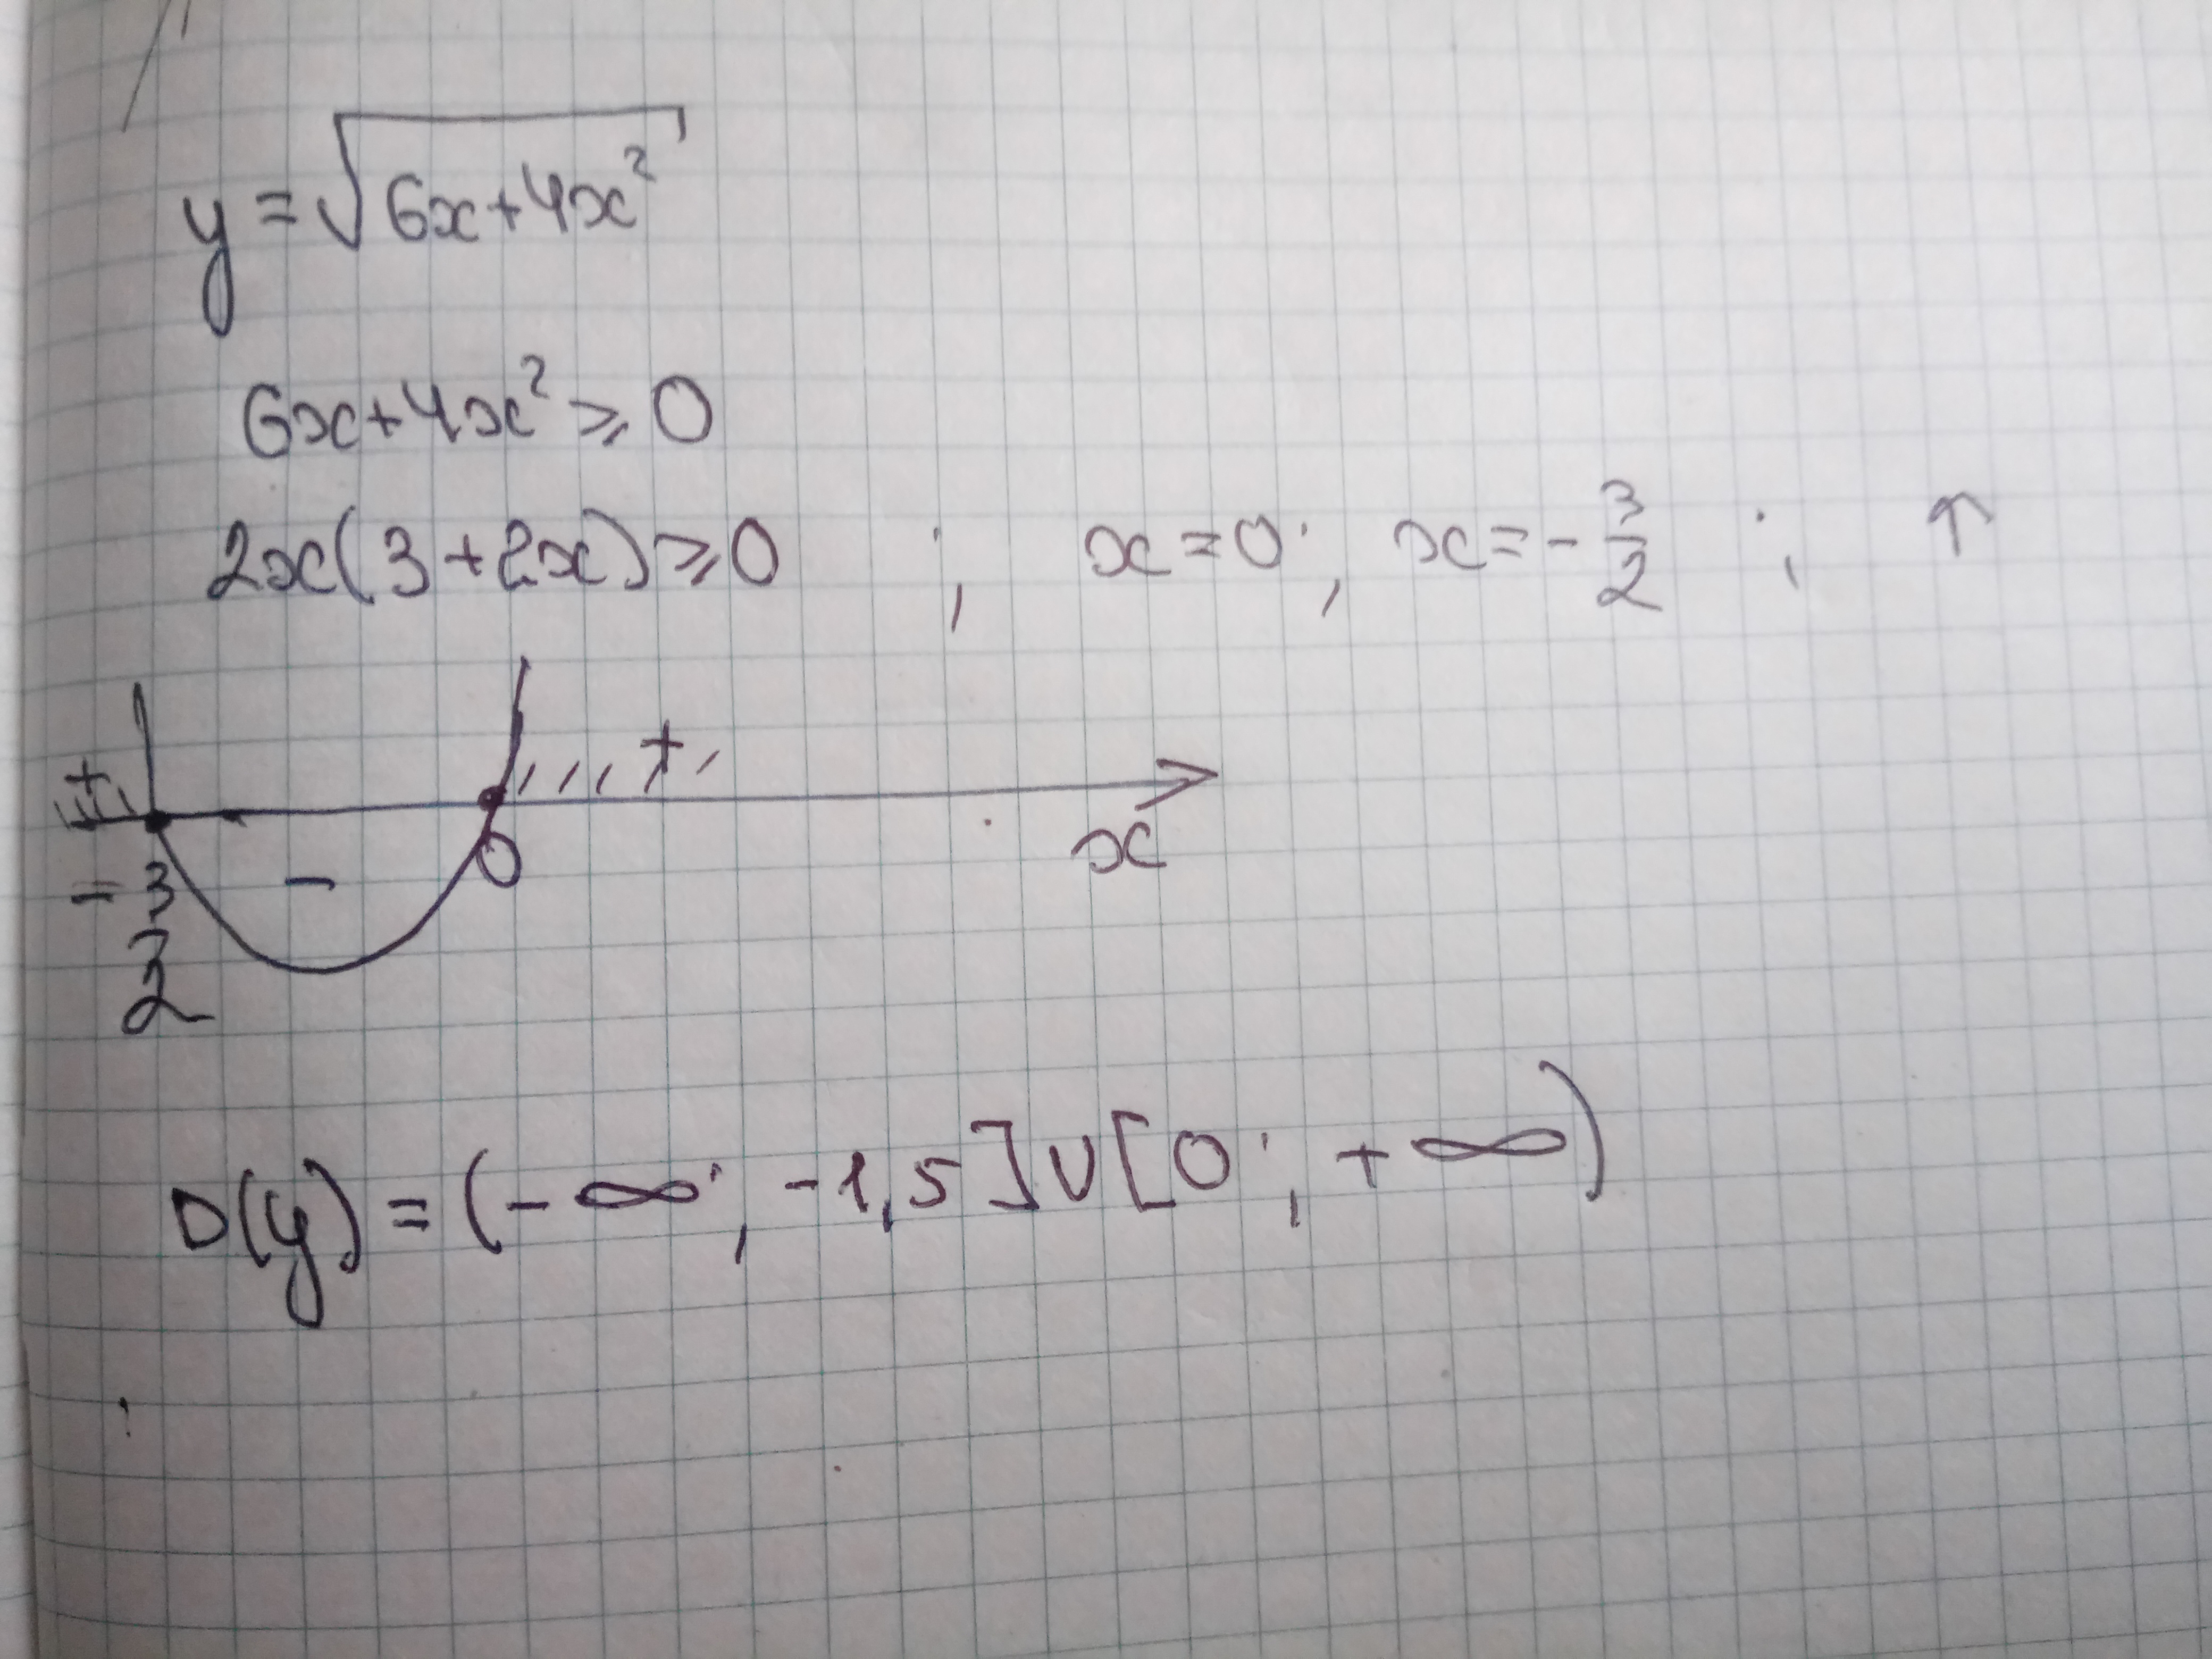 y = √(6x+4x²)
6x+4x² ⩾ 0
2x(3+2x) ⩾ 0 ; x=0; x=-3/2 ; ↑
+ - 0 + x
-3/2
D(y) = (-∞; -1,5]∪[0; +∞)